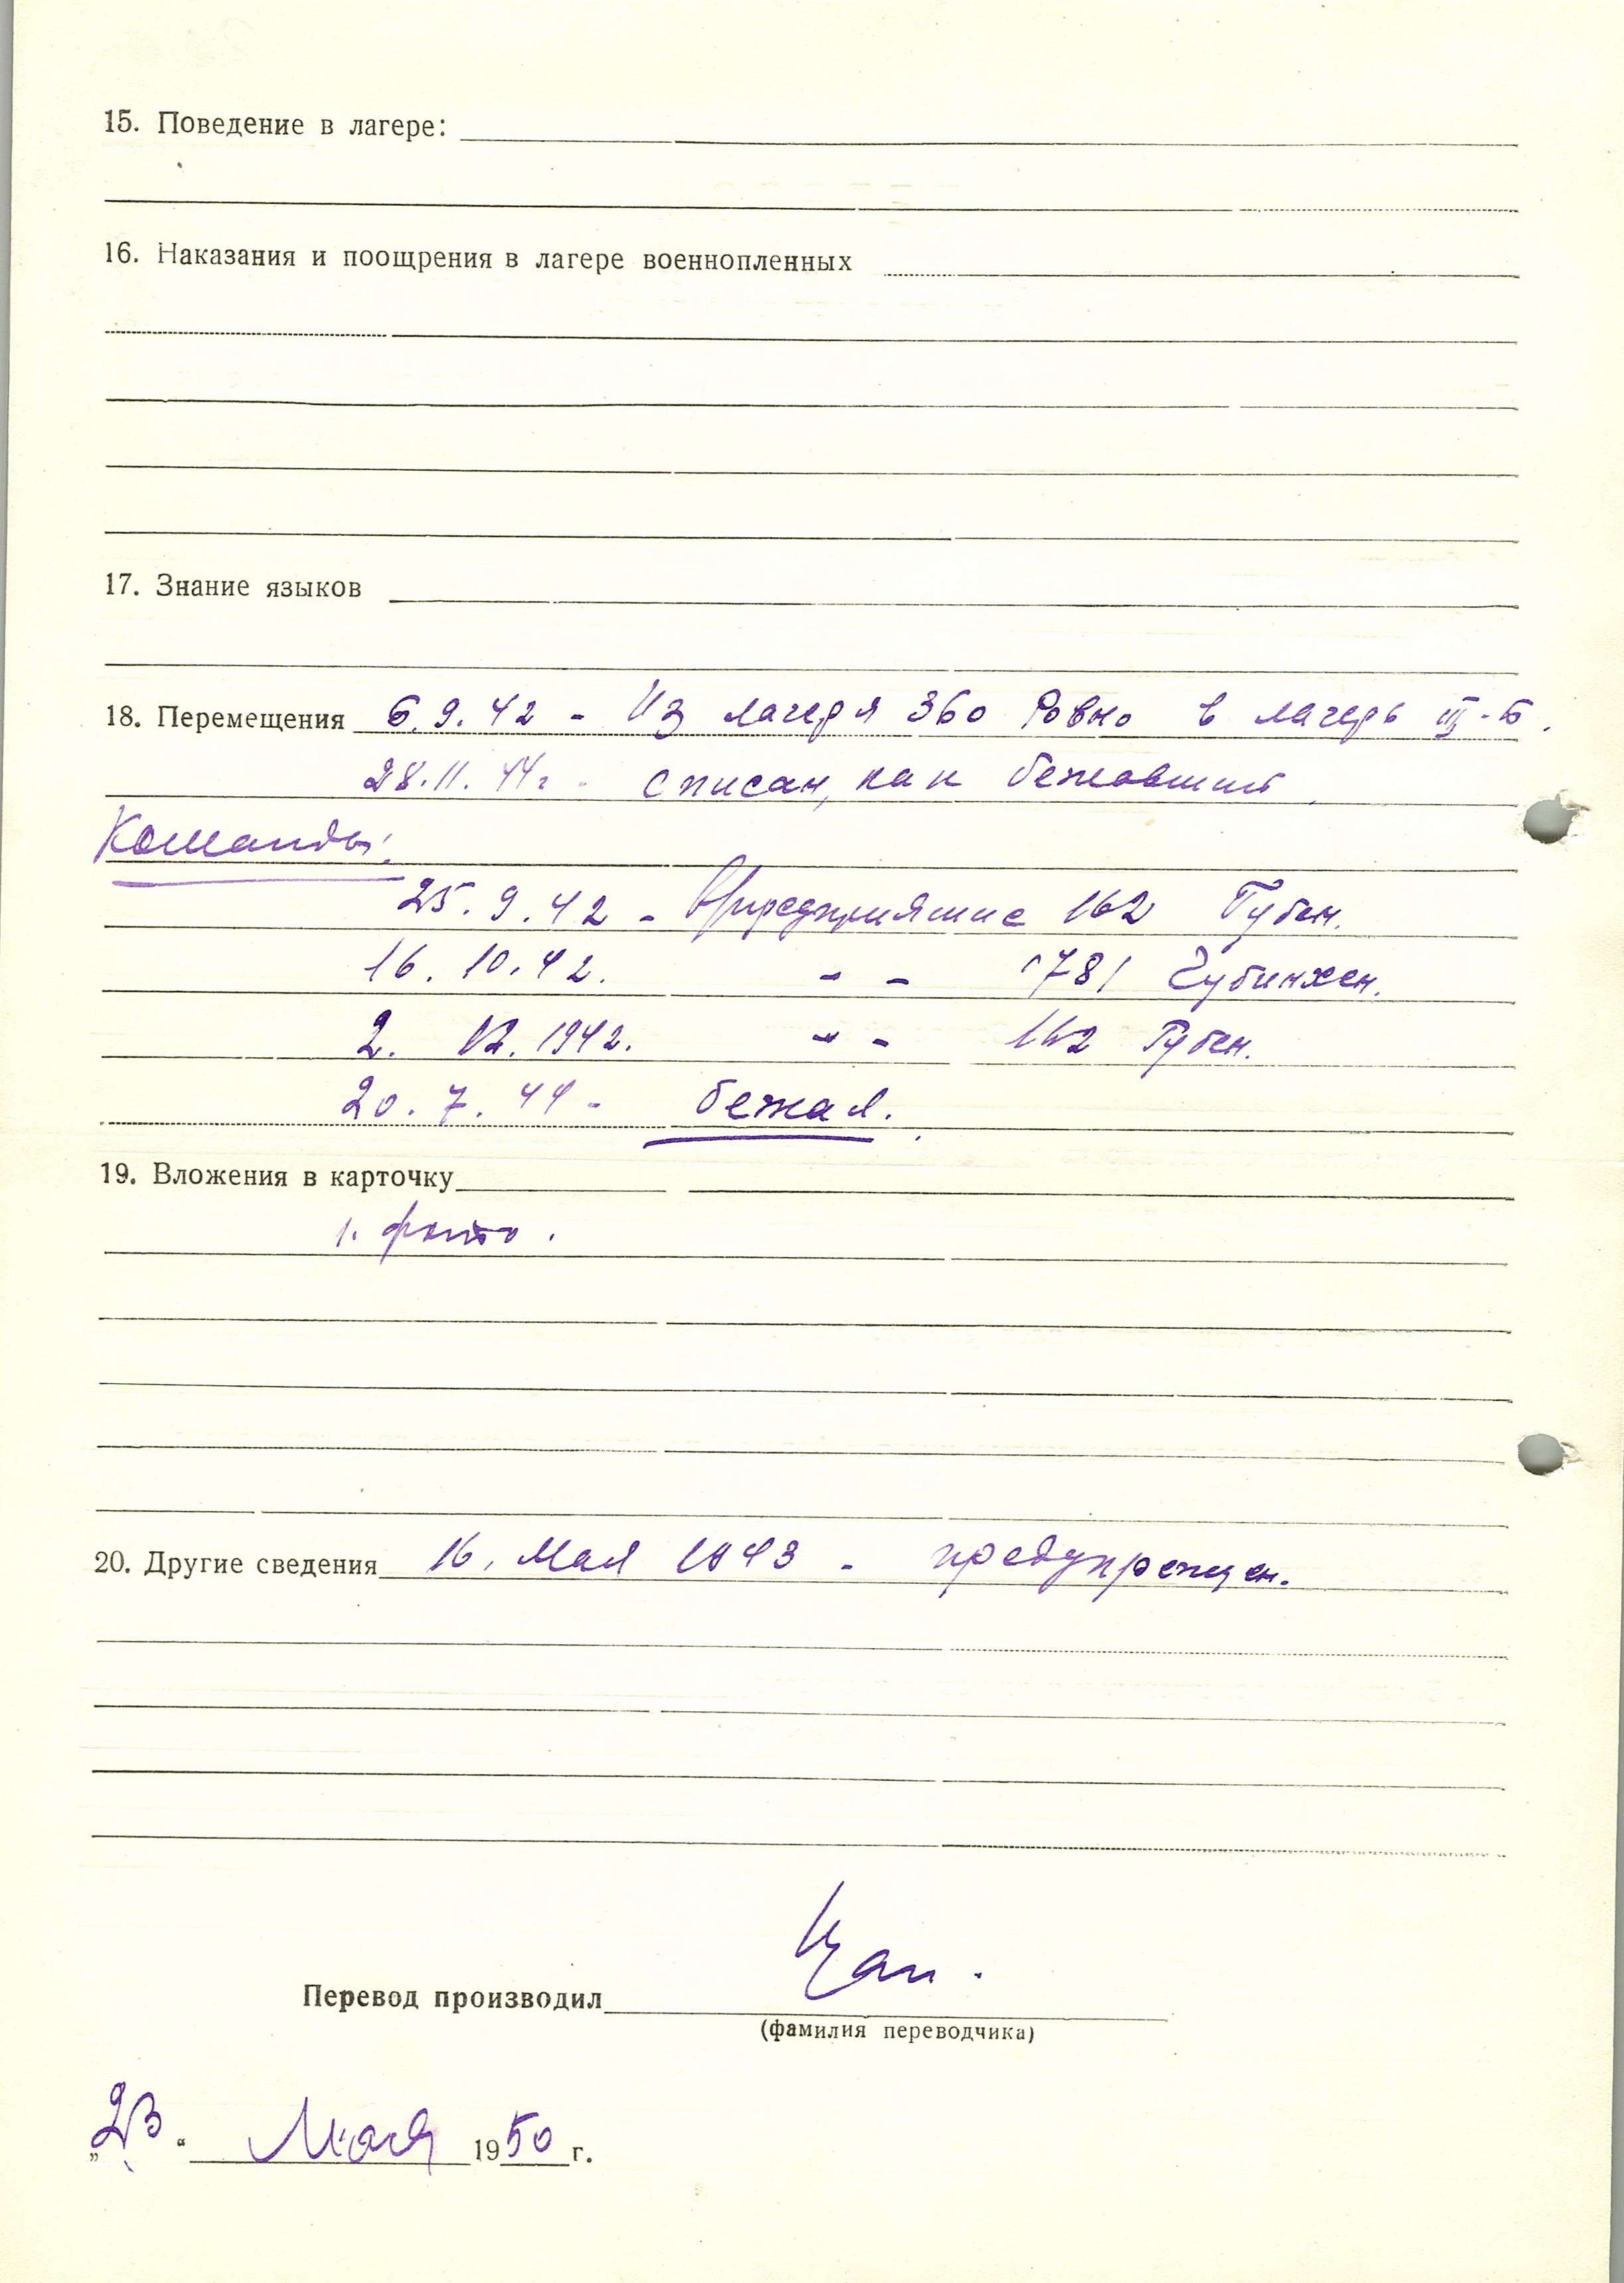 15. Поведение в лагере:
16. Наказания и поощрения в лагере военнопленных
17. Знание языков
18. Перемещения 6.9.42 - Из лагеря 360 Ровно в лагерь III-Б.
28.11.44г. - списан, как бежавший.
Команды:
25.9.42 - Предприятие 162 Губен.
16.10.42. - - 1781 Губинхен.
2. 1942. - - 162 Губен.
20.7.44 - бежал.
19. Вложения в карточку
1. фото.
20. Другие сведения 16. Мая 1943 - предупрежден.
Перевод производил
(фамилия переводчика)
„23“ Мая 1950 г.